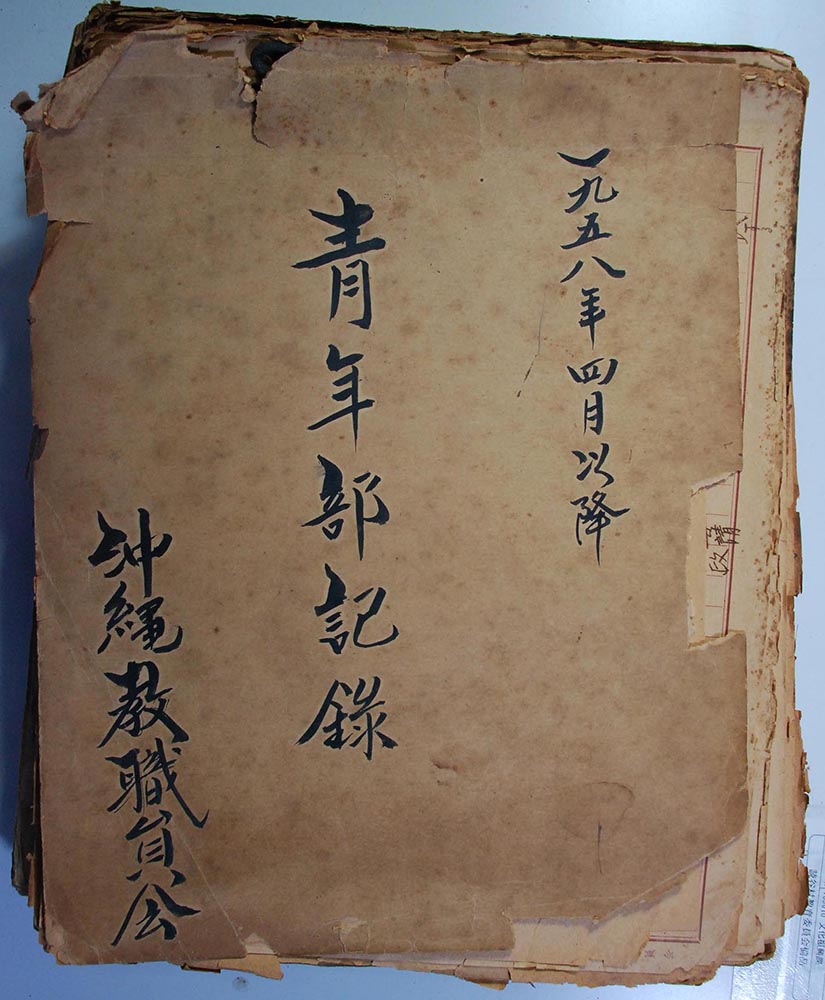 一九五八年四月以降
青年部記録
沖縄教職員会